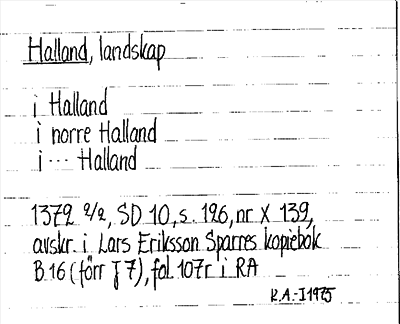 Halland, landskap
i Halland
i norre Halland
i ... Halland
1379 2/2, SD 10, s. 126, nr X 139,
avskr. i Lars Eriksson Sparres kopiebok
B 16 (förr I 7), fol. 107r i RA
R.A.-I 1975